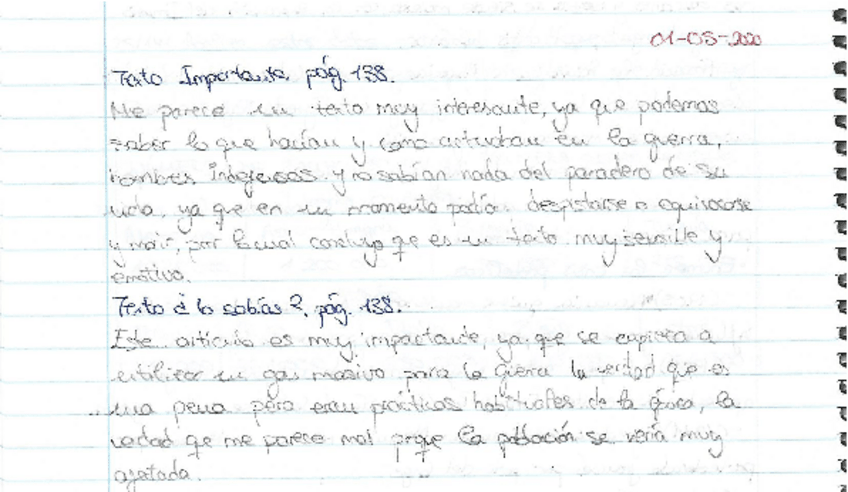 01-05-2020
Texto Importante pág. 138.
Me parece un texto muy interesante, ya que podemos
saber lo que hacían y como actuaban en la guerra,
hombres y no sabían nada del paradero de su
vida, ya que en un momento podía despistarse o equivocarse
y morir, por lo cual concluyo que es un texto muy sensille y
emotivo.
Texto ¿ lo sabías ?, pág. 138.
Este artículo es muy impactante, ya que se empieza a
utilizar un gas masivo para la guerra la verdad que es
una pena pero eran prácticas habituales de la época, la
verdad que me parece mal porque la población se vería muy
agotada.